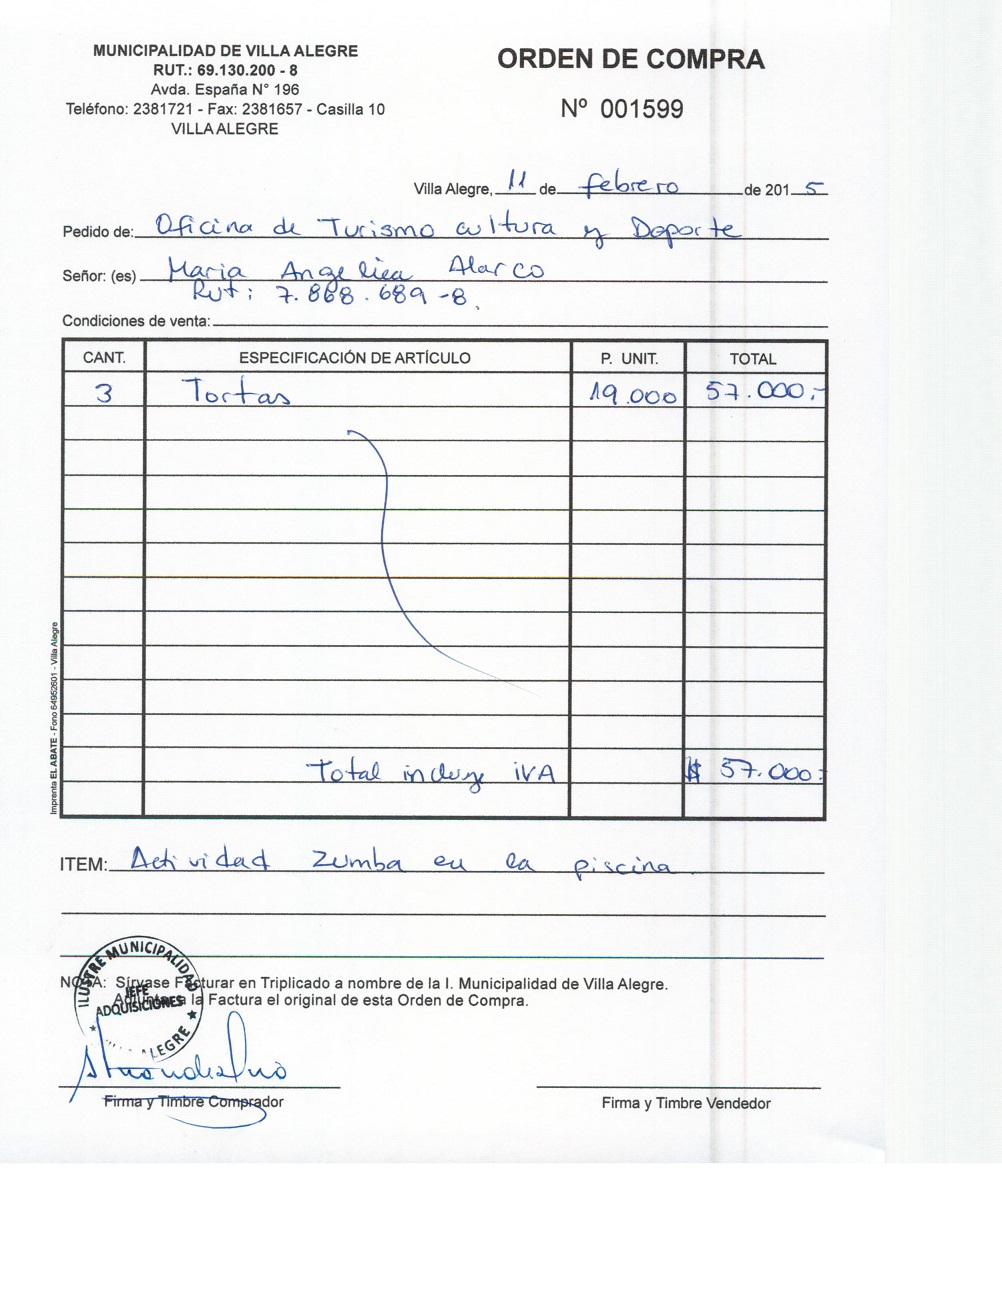 MUNICIPALIDAD DE VILLA ALEGRE
RUT.: 69.130.200 - 8
Avda. España N° 196
Teléfono: 2381721 - Fax: 2381657 - Casilla 10
VILLA ALEGRE
ORDEN DE COMPRA
Nº 001599
Villa Alegre, 11 de febrero de 2015
Pedido de: Oficina de Turismo cultura y Deporte
Señor: (es) Maria Angelica Alarco
Rut: 7.868.689-8.
Condiciones de venta:
CANT. ESPECIFICACIÓN DE ARTÍCULO P. UNIT. TOTAL
3 Tortas 19.000 57.000.-
Total incluye IVA $ 57.000.-
ITEM: Actividad Zumba en la piscina
NOTA: Sírvase Facturar en Triplicado a nombre de la I. Municipalidad de Villa Alegre.
Adjuntar a la Factura el original de esta Orden de Compra.
ILUSTRE MUNICIPALIDAD
JEFE
ADQUISICIONES
ALEGRE
Firma y Timbre Comprador
Firma y Timbre Vendedor
Imprenta EL ABATE - Fono 64952601 - Villa Alegre